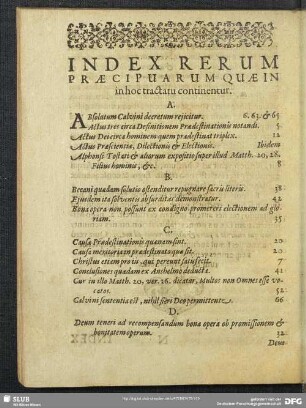 INDEX RERUM
PRÆCIPUARUM QUÆ IN
in hoc tractatu continentur.
A.
ABsolutum Calvini decretum rejicitur. 6. 63. & 65
Actus tres circa Definitionem Prædestinationis notandi. 5
Actus Dei circa hominem nondum prædestinatum triplex. 12
Actus Præscientia, Dilectionis & Electionis. Ibidem
Alphonsi Tostati & aliorum expositio super illud Matth. 20, 28.
Filius hominis, &c. 8
B.
Becani quadam solutio ostenditur repugnare sacris literis. 38
Ejusdem ita solventis absurditas demonstratur. 42
Bona opera non possunt ex condigno promereri electionem ad glo-
riam. 35
C.
Causa Prædestinationis quænam sint. 20
Causa meritoria in prædestinato quæ sit. 20.
Christus etiam pro iis, qui pereunt satisfecit. 7
Conclusiones quædam ex Anthelmo deductæ. 41
Cur in illo Matth. 20, ver. 16. dicatur, Multos non Omnes esse vo-
catos. 52
Calvini sententia est, nihil fieri Deo permittente. 66
D.
Deum teneri ad recompensandum bona opera ob promissionem &
bonitatem operum. 32
Deus
SLUB
Wir führen Wissen.
gefördert von der
Deutschen Forschungsgemeinschaft
DFG